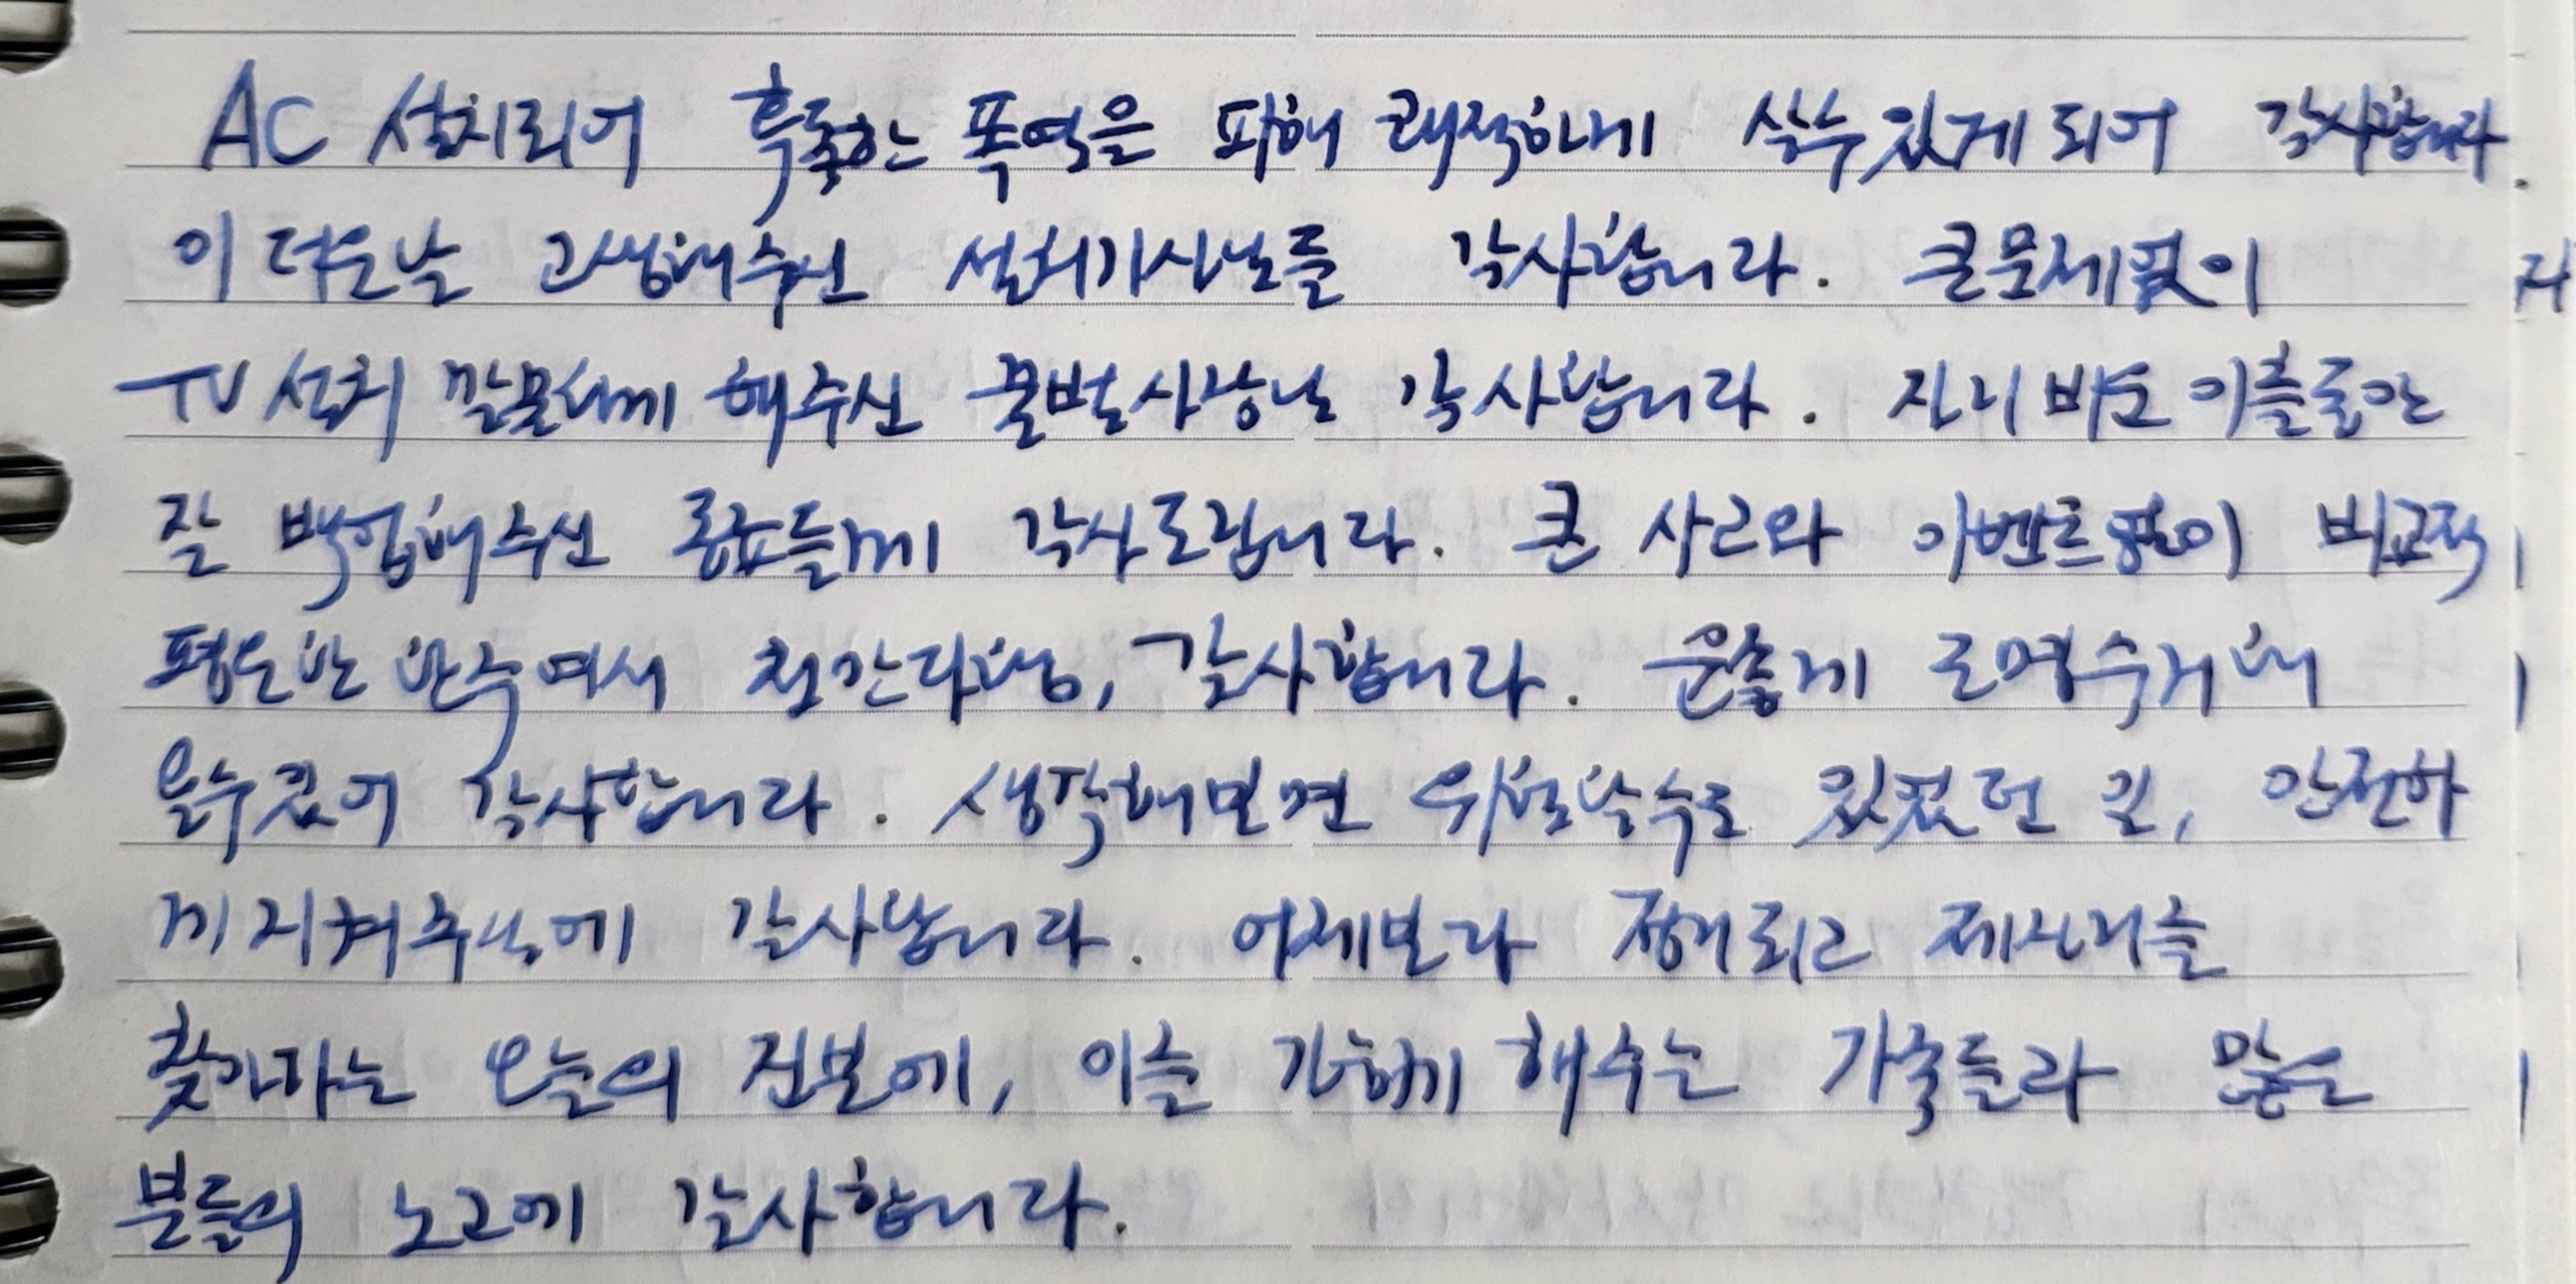 AC 설치되어 혹독한 폭염을 피해 쾌적하게 쉴수있게 되어 감사합니다.
이 더운날 고생해주신 설치기사님들 감사합니다. 큰문제없이
TV 설치 깔끔하게 해주신 꿀벌사장님 감사합니다. 자리 비운 이틀동안
잘 백업해주신 동료들께 감사드립니다. 큰 사고와 이벤트없이 비교적
평온한 한주여서 천만다행, 감사합니다. 운좋게 수거해
올수있어 감사합니다. 생각해보면 위험할수도 있었던 길, 안전하
게 지켜주심에 감사합니다. 어제보다 정리되고 제자리를
찾아가는 오늘의 진보에, 이를 가능하게 해주는 가족들과 많은
분들의 노고에 감사합니다.